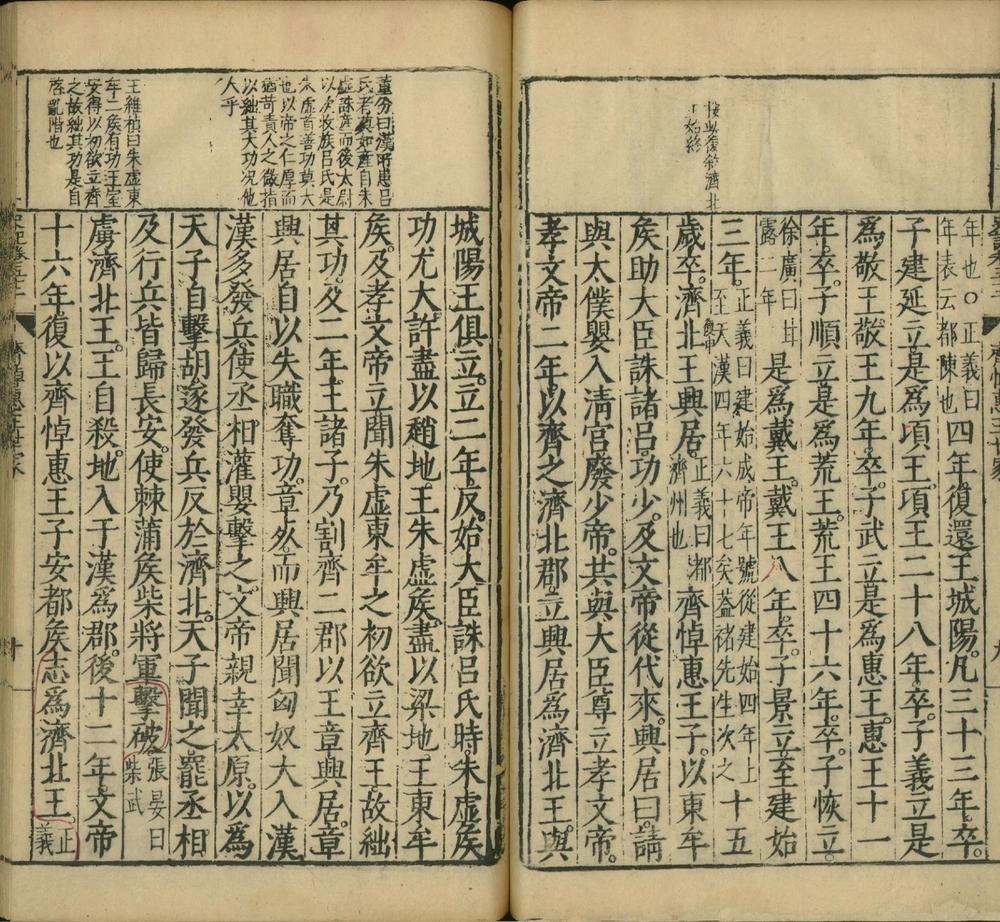 按此復叙濟北
王始終
年也○正義曰
年表云都陳也四年復還王城陽凡三十三年卒
子建延立是爲項王項王二十八年卒子義立是
爲敬王敬王九年卒子武立是爲惠王惠王十一
年卒子順立是爲荒王荒王四十六年卒子恢立
徐廣曰甘
露二年是爲戴王戴王八年卒子景立至建始
三年正義曰建始成帝年號從建始四年上
至天漢四年六十七矣蓋褚先生次之十五
歲卒濟北王興居正義曰都
濟州也齊悼惠王子以東牟
矦助大臣誅諸呂功少及文帝從代來興居曰請
與太僕嬰入清宮廢少帝共與大臣尊立孝文帝
孝文帝二年以齊之濟北郡立興居爲濟北王與
董份曰漢所患呂
氏者莫如産自朱
虛誅産而後太尉
以次收族呂氏是
朱虛首善功莫大
也以帝之仁厚而
猶苛責人之微指
以絀其大功況他
人乎
王維楨曰朱虛東
牟二矦有功王室
安得以初欲立齊
之故絀其功是自
啓亂階也
城陽王俱立立二年反始大臣誅呂氏時朱虛矦
功尤大許盡以趙地王朱虛矦盡以梁地王東牟
矦及孝文帝立聞朱虛東牟之初欲立齊王故絀
其功及二年王諸子乃割齊二郡以王章興居章
興居自以失職奪功章死而興居聞匈奴大入漢
漢多發兵使丞相灌嬰擊之文帝親幸太原以爲
天子自擊胡遂發兵反於濟北天子聞之罷丞相
及行兵皆歸長安使棘蒲矦柴將軍擊破張晏曰
柴武
虜濟北王王自殺地入于漢爲郡後十二年文帝
十六年復以齊悼惠王子安都矦志爲濟北王正
義